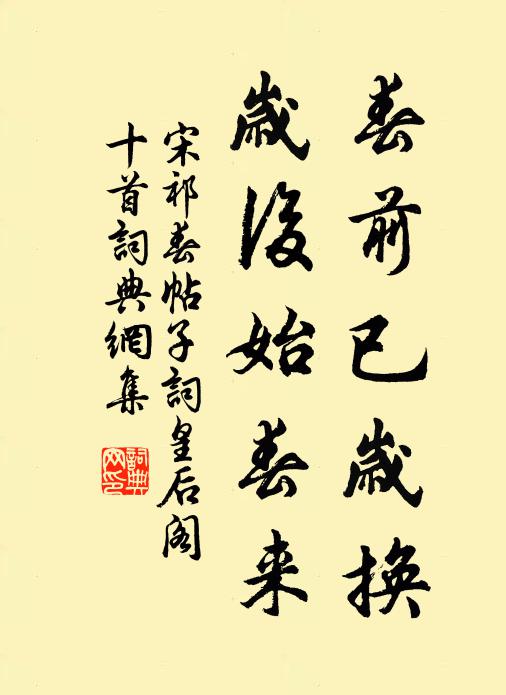 春前已歲換
歲後始春来
宋祁春帖子詞皇后阁
十首詞典網集
詞典
网印